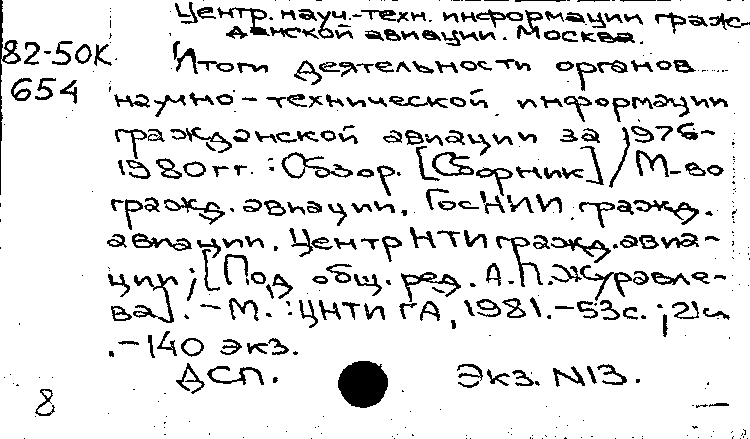 Центр. науч.-техн. информации граж-
данской авиации. Москва.
82-50К
654
Итоги деятельности органов
научно-технической информации
гражданской авиации за 1976-
1980 гг. : Обзор. [Сборник] / М-во
гражд. авиации, ГосНИИ гражд.
авиации, Центр НТИ гражд. авиа-
ции ; [Под общ. ред. А.П. Журавле-
ва]. - М. : ЦНТИ ГА, 1981. - 53с. ; 21см
. - 140 экз.
ДСП. Экз. N13.
8